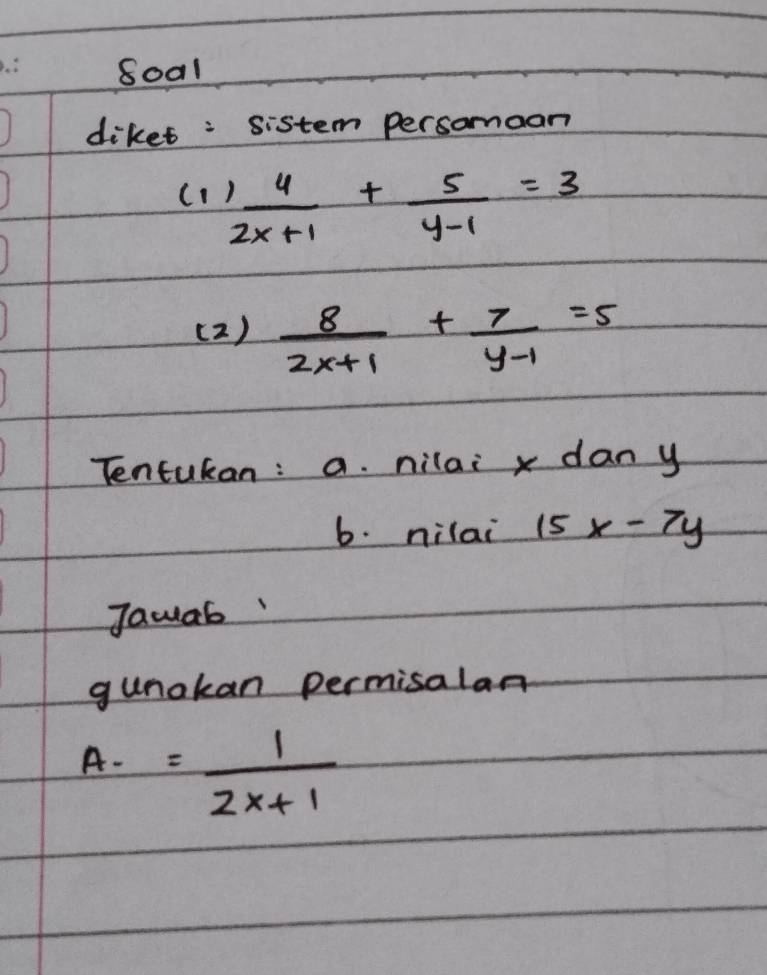 Soal
diket : sistem persamaan
(1) 4/(2x+1) + 5/(y-1) = 3
(2) 8/(2x+1) + 7/(y-1) = 5
Tentukan : a. nilai x dan y
b. nilai 15x - 7y
Jawab
gunakan permisalan
A. = 1/(2x+1)